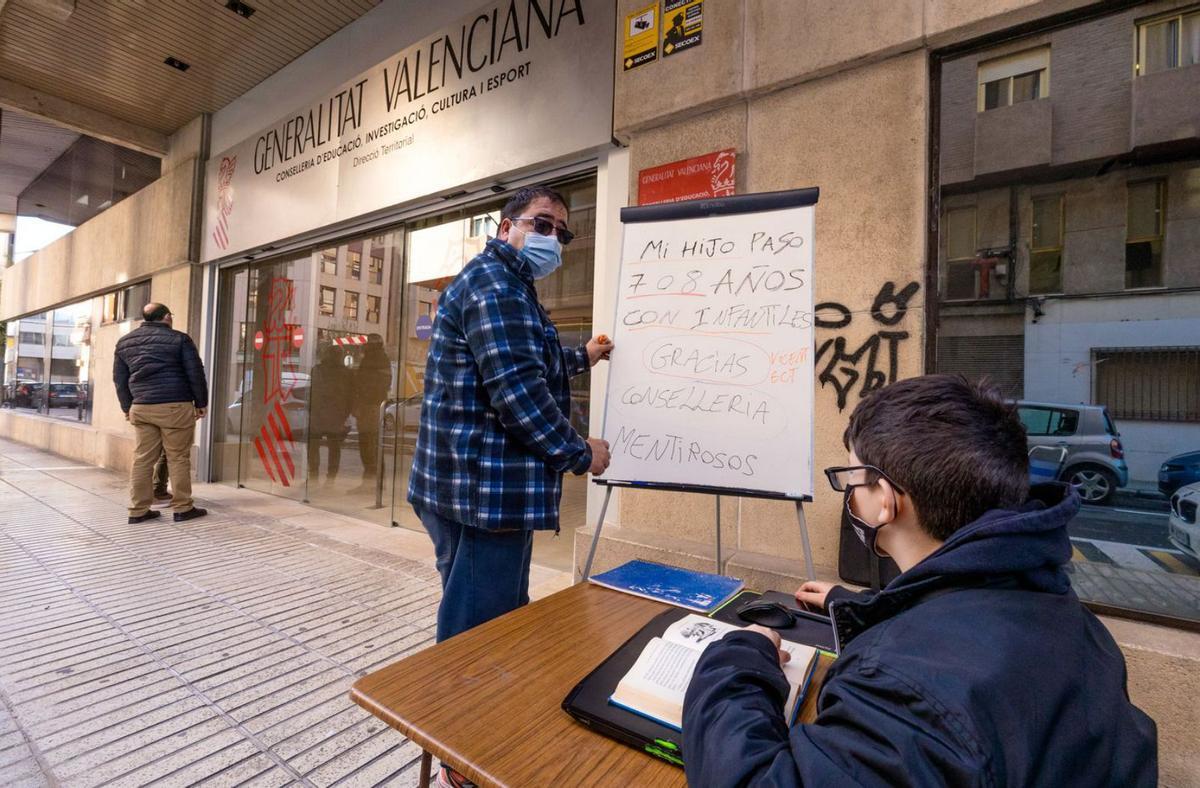 GENERALITAT VALENCIANA
CONSELLERIA D'EDUCACIÓ, INVESTIGACIÓ, CULTURA I ESPORT
Direcció Territorial
CONECTADA
SECOEX
SECOEX
GENERALITAT VALENCIANA
CONSELLERIA D'EDUCACIÓ,
MI HIJO PASO
7 O 8 AÑOS
CON INFANTILES
GRACIAS
VICENT
ECT
CONSELLERIA
MENTIROSOS